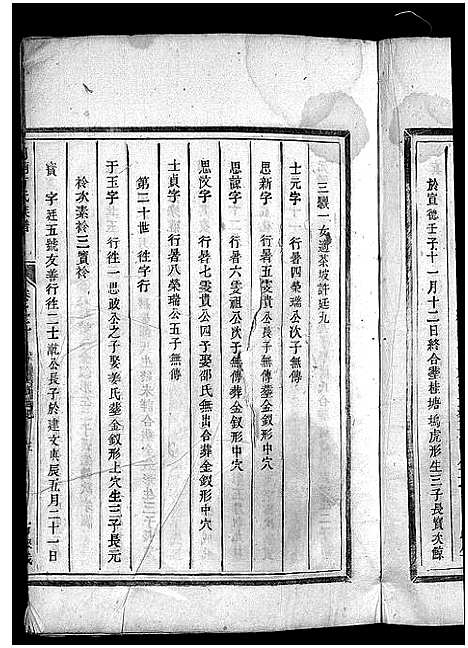 於宣德壬子十一月十二日終合塟桂塘塢虎形生三子長寶次餘
三驥一女適茶坡許廷九
士元字 行暑四榮瑞公次子無傳
思新字 行暑五雯貴公
思諱字 行暑六雯祖公次子無傳葬金釵形中穴
思汶字 行暑七雯貴公四子娶邵氏無出合葬金釵形中穴
士貞字 行暑八榮瑞公五子無傳
第二十世 徃字行
于玉字 行徃一思政公之子娶姜氏塟金釵形上穴生三子長元
衿次素衿三寶衿
寶 字廷五號友善行徃二士
公長子於建文庚辰五月二十一日